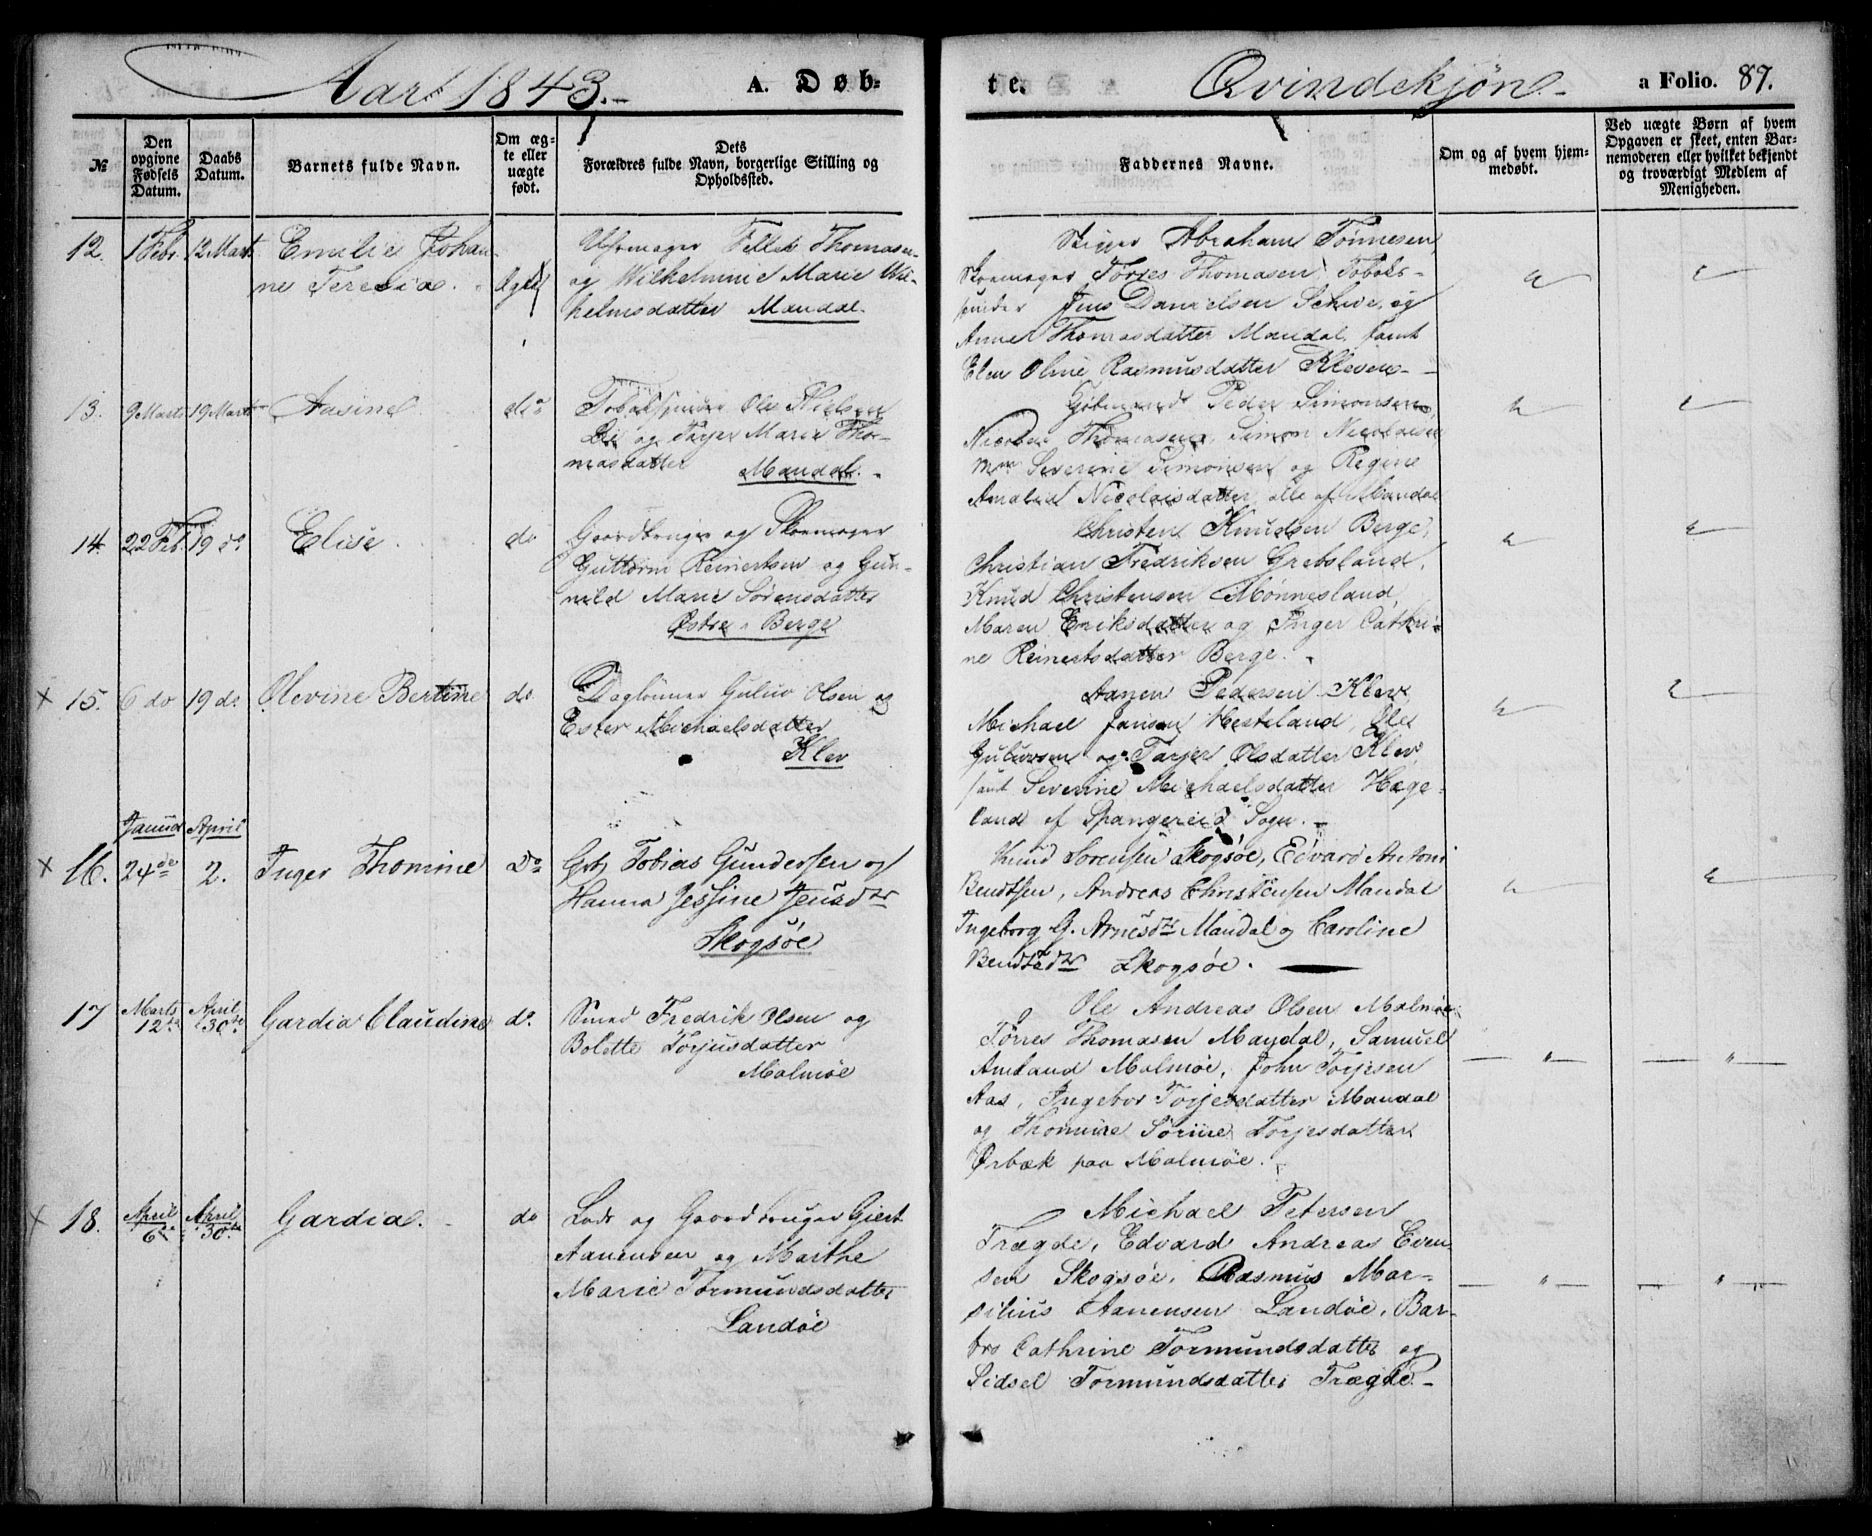 Aar 1843.-
A. Døb-
te.
Qvindekjøn.-
a Folio. 87.
№
Den opgivne Fødsels Datum.
Daabs Datum.
Barnets fulde Navn.
Om ægte eller uægte født.
Dets Forældres fulde Navn, borgerlige Stilling og Opholdssted.
Faddernes Navne.
Om og af hvem hjemmedøbt.
Ved uægte Børn af hvem Opgaven er skeet, enten Barnemoderen eller hvilket bekjendt og troværdigt Medlem af Menigheden.
12. 1 Febr. 12 Marts
Emilie Johan-
ne Teresia.
Ægte
Thomasen
og Wilhelmine Marie Wil-
helmsdatter Mandal.
Abraham Tönnesen,
Skoemager Törres Thomasen, Tobaks-
spinder Jens Danielsen Schive, og
Anne Thomasdatter Mandal, samt
Elen Oline Rasmusdatter Kleven.-
13. 9 Marts 19 Marts
Aasine
do
Tobakspinder Ole Nielsen
og Tarjer Marie Tho-
masdatter Mandal.
Peder Simonsen,
Nicolai Thomasen, Simon Nicolaisen
Severine Simonsen og Regine
Amalia Nicolaisdatter, alle af Mandal
14. 22 Feb. 19 do
Elise
do
Gaardbruger og Skoemager
Guttorm Reinertsen og Gun-
nild Marie Sörensdatter
Østre Berge
Christen Knudsen Berge,
Christian Fredriksen Grebsland,
Knud Christensen Mönnesland,
Maren Eriksdatter og Inger Cathri-
ne Reinertsdatter Berge.
x 15. 6 do 19 do.
Olevine Bertine
do
Daglönner Guluv Olsen og
Ester Michaelsdatter
Klev
Aanen Pedersen Klev
Michael Jansen Hesteland, Ole
Guluvsen og Tarjer Olsdatter Klev,
samt Severine Michaelsdatter Hæge-
land af Spangereid Sogn.-
Januar April
x 16. 24de 2.
Inger Thomine
Do
Gbr Tobias Gundersen og
Hanna Jessine Jensdtr
Skogsöe
Knud Sörensen Skogsöe, Edvard Anton
Bendtsen, Andreas Christensen Mandal
Ingeborg G. Arnesdtr Mandal og Caroline
Bendtsdtr Skogsöe.
17 Marts 12te April 30te
Gardia Claudine
do.
Smed Fredrik Olsen og
Bolette Torjusdatter
Malmöe
Ole Andreas Olsen Malmöe
Törres Thomasen Mandal, Samuel
Amland Malmöe, John Torjesen
Aas, Ingebor Torjesdatter Mandal
og Thomine Sörine Torjesdatter
Ørbæk paa Malmöe.
x 18. April 6te April 30te
Gardia.
do
Lods og Gaardbruger Giert
Aanensen og Marthe
Marie Tormundsdatter
Landöe
Michael Petersen
Trægde, Edvard Andreas Even-
sen Skogsöe, Rasmus Mar-
silius Aanensen Landöe, Bar-
bro Cathrine Tormundsdatter og
Sidsel Tormundsdatter Trægde.-